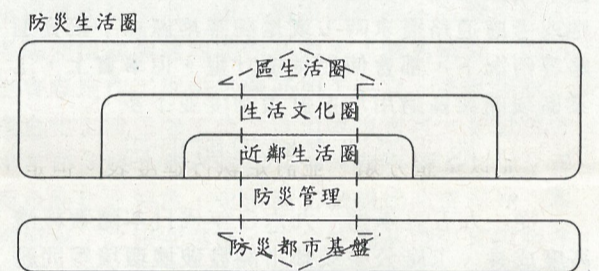 防災生活圈
區生活圈
生活文化圈
近鄰生活圈
防災管理
防災都市基盤